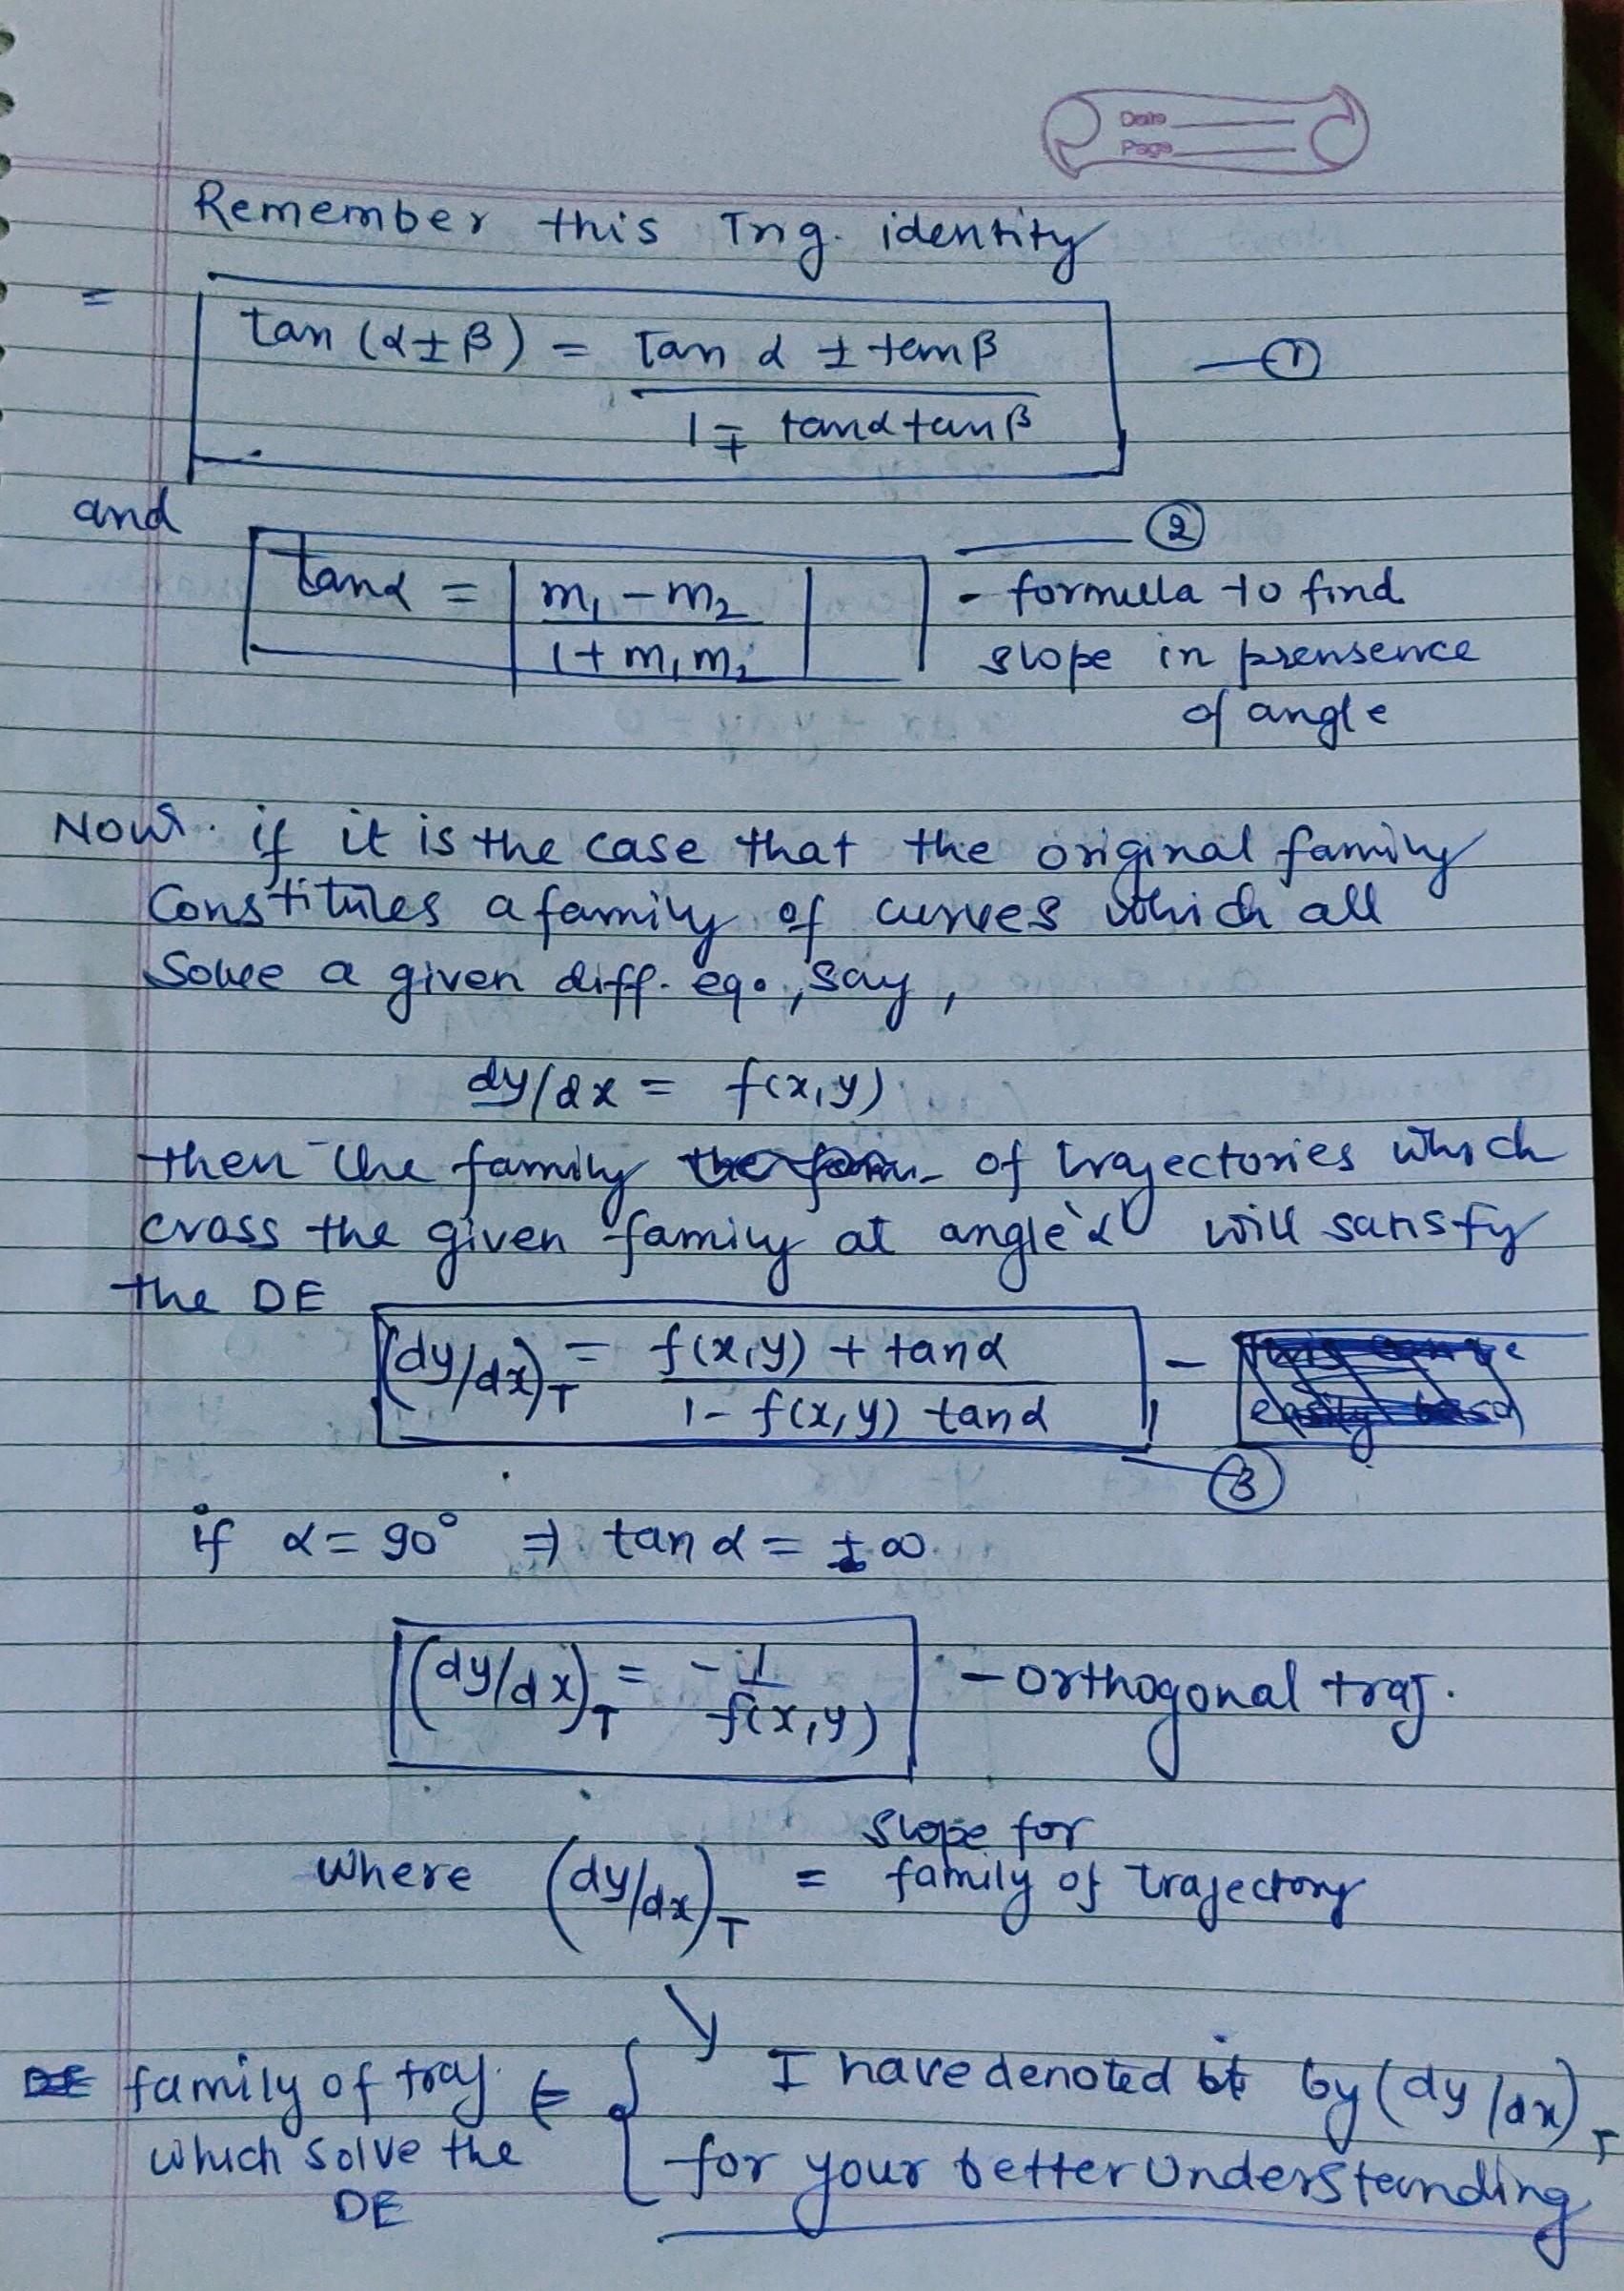 Date
Page
Remember this Trig. identity
=
tan (α±β) = tan α ± tanβ / 1 ∓ tanα tanβ — ①
and
tanα = | m₁ - m₂ / 1 + m₁m₂ | — ②
- formula to find
slope in prensence
of angle
Now. if it is the case that the original family
Constitutes a family of curves which all
Solve a given diff. eqⁿ, say,
dy/dx = f(x,y)
then the family of trajectories which
cross the given family at angle 'α' will satisfy
the DE
(dy/dx)_T = f(x,y) + tanα / 1 - f(x,y) tanα — ③
if α = 90° ⇒ tan α = ±∞
(dy/dx)_T = - 1 / f(x,y) - orthogonal traj.
where (dy/dx)_T = slope for family of trajectory
I have denoted it by (dy/dx)_T
for your better Understanding
family of traj.
which solve the
DE